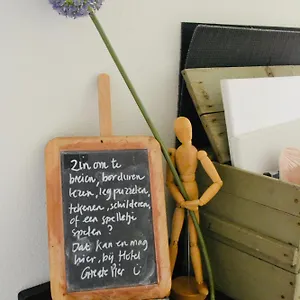 Zin om te
breien, borduren
lezen, legpuzzelen,
tekenen, schilderen,
of een spelletje
spelen?
Dat kan en mag
hier, bij Hotel
Greate Pier ☺